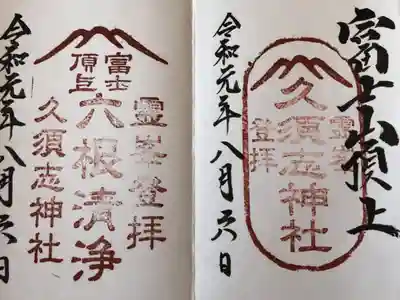 富士山頂上
久須志神社
霊峯
登拝
令和元年八月六日
霊峯登拝
富士
頂上
六根清浄
久須志神社
令和元年八月六日